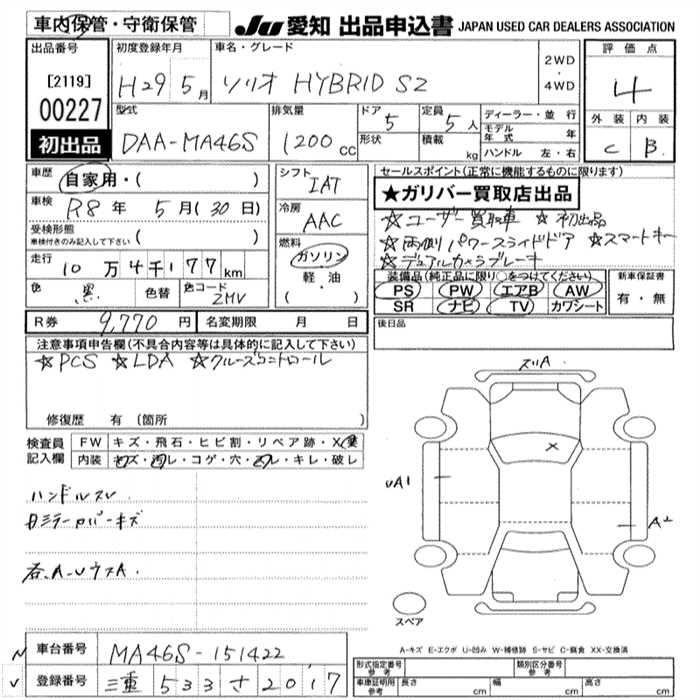 車内保管・守衛保管
JU 愛知 出品申込書 JAPAN USED CAR DEALERS ASSOCIATION
出品番号
[2119]
00227
初出品
初度登録年月
H29 5月
車名・グレード
ソリオ HYBRID SZ
2WD
・
4WD
評価点
4
外装 内装
C B
型式
DAA-MA46S
排気量
1200 cc
ドア
5
形状
定員
5人
積載
kg
ディーラー・並行
モデル年式 年
ハンドル 左・右
車歴
自家用・( )
車検
R8年 5月(30日)
受検形態
車検付きのみ記入して下さい ( )
走行
10万4千177km
色
黒
色替
色コード
ZMV
シフト
IAT
冷房
AAC
燃料
ガソリン
軽・油
( )
セールスポイント(正常に機能するものに限ります)
★ガリバー買取店出品
☆ユーザー買取車 ☆初出品
☆両側パワースライドドア ☆スマートキー
☆デュアルカメラブレーキ
装備品(純正品に限り○をつけてください)
PS PW エアB AW
SR ナビ TV カワシート
新車保証書
有・無
R券 9,770円
名変期限 月 日
後日品
注意事項申告欄(不具合内容等は具体的に記入して下さい)
☆PCS ☆LDA ☆クルーズコントロール
修復歴 有 〔箇所 〕
検査員
記入欄
FW キズ・飛石・ヒビ割・リペア跡・X
内装 キズ・汚レ・コゲ・穴・スレ・キレ・破レ
ハンドルスレ
ズリA
X
UA1
A2
スペア
A-キズ E-エクボ U-凹み W-補修跡 S-サビ C-腐食 XX-交換済
車台番号 MA46S-151422
登録番号 三重 533 さ 2017
形式指定番号
参考
類別区分番号
参考
車庫証明用
参考
長さ cm 幅 cm 高さ cm